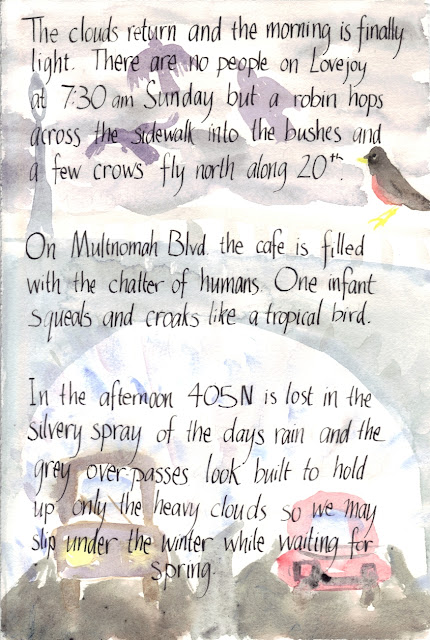 The clouds return and the morning is finally
light. There are no people on Lovejoy
at 7:30 am Sunday but a robin hops
across the sidewalk into the bushes and
a few crows fly north along 20th.
On Multnomah Blvd. the cafe is filled
with the chatter of humans. One infant
squeals and croaks like a tropical bird.
In the afternoon 405N is lost in the
silvery spray of the days rain and the
grey over-passes look built to hold
up only the heavy clouds so we may
slip under the winter while waiting for
spring.